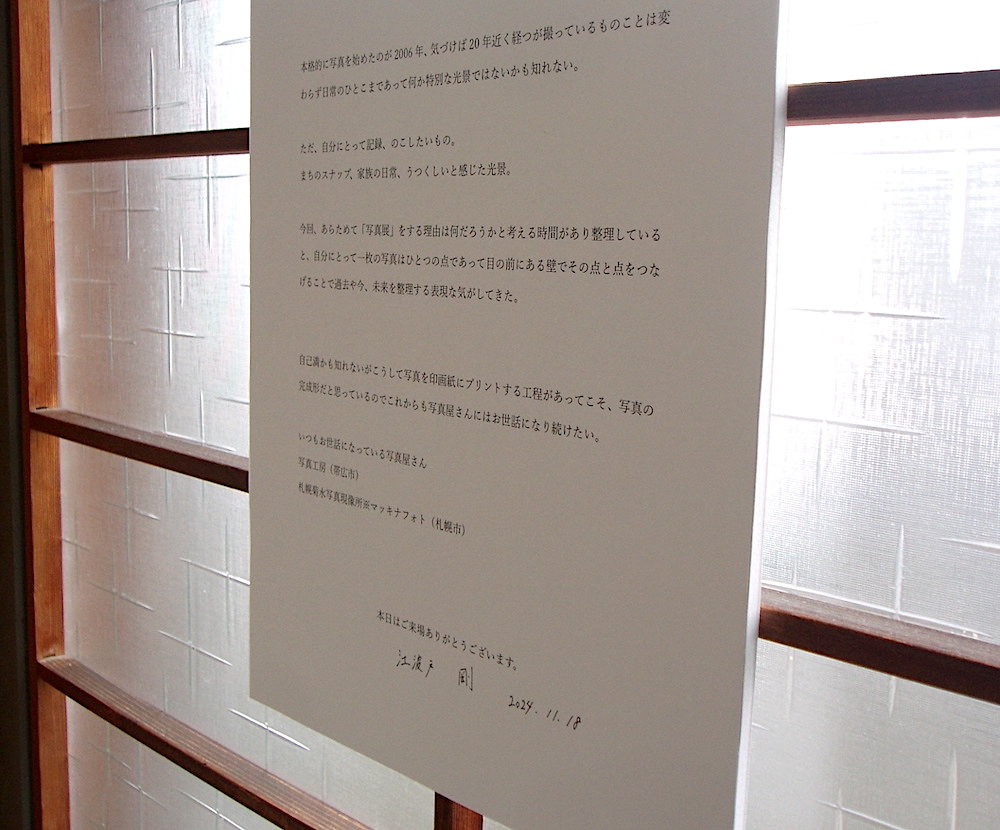 本格的に写真を始めたのが2006年、気づけば20年近く経つが撮っているものことは変
わらず日常のひとこまであって何か特別な光景ではないかも知れない。
ただ、自分にとって記録、のこしたいもの。
まちのスナップ、家族の日常、うつくしいと感じた光景。
今回、あらためて「写真展」をする理由は何だろうかと考える時間があり整理している
と、自分にとって一枚の写真はひとつの点であって目の前にある壁でその点と点をつな
げることで過去や今、未来を整理する表現な気がしてきた。
自己満かも知れないがこうして写真を印画紙にプリントする工程があってこそ、写真の
完成形だと思っているのでこれからも写真屋さんにはお世話になり続けたい。
いつもお世話になっている写真屋さん
写真工房（帯広市）
札幌菊水写真現像所※マッキナフォト（札幌市）
本日はご来場ありがとうございます。
江波戸 剛
2024.11.18